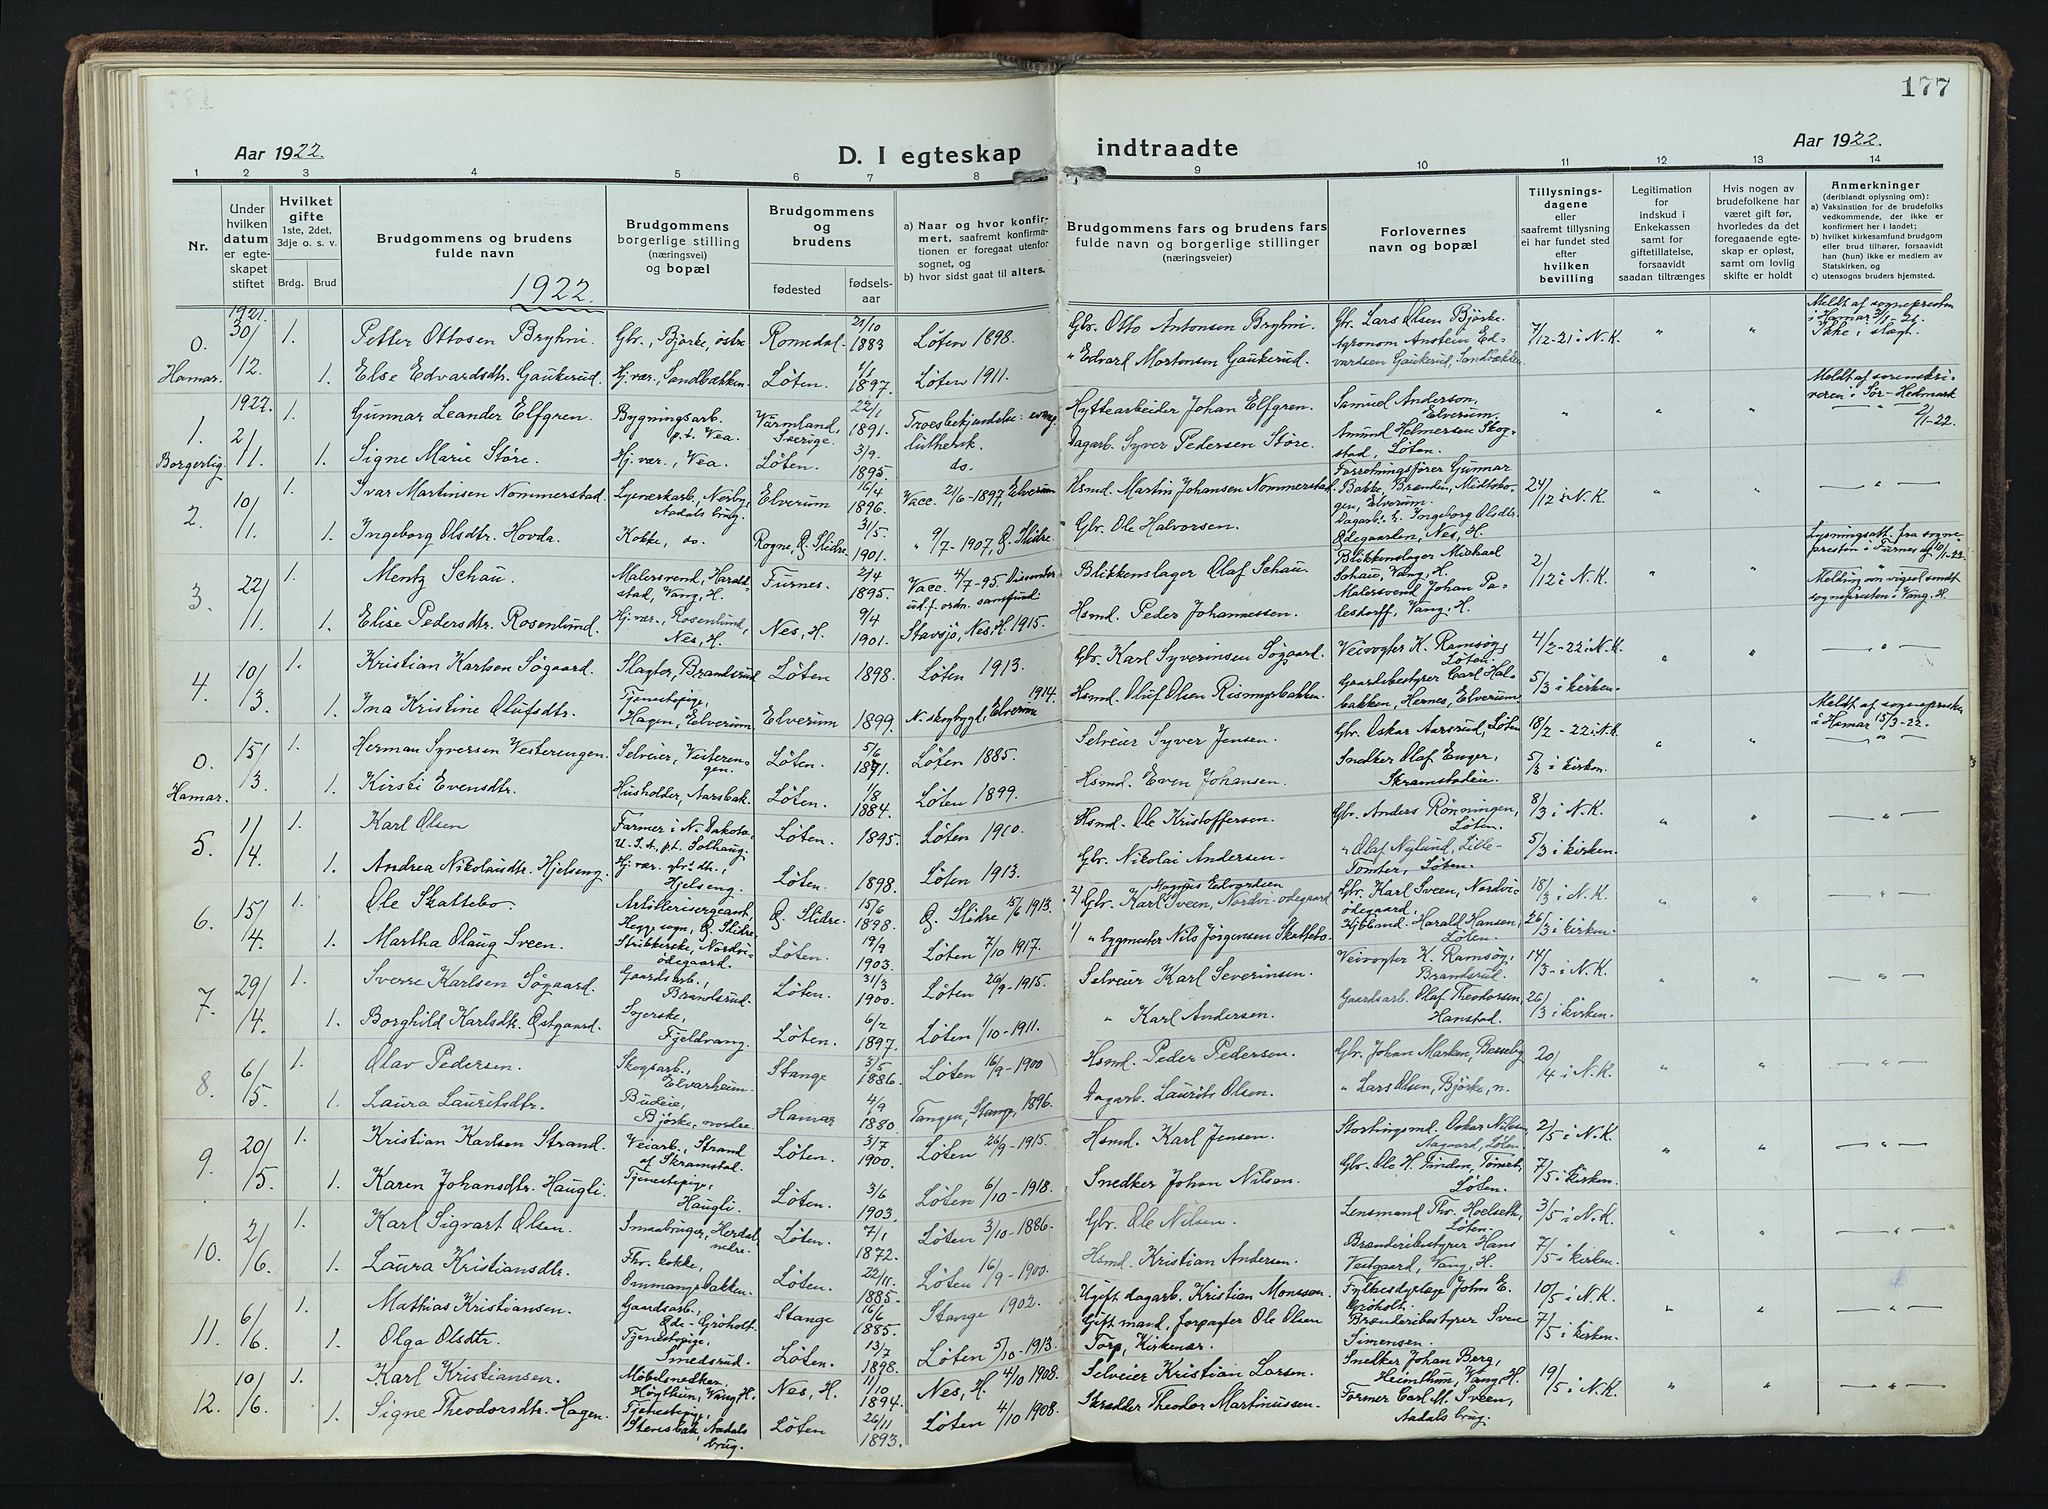 177
Aar 1922.
D. I egteskap indtraadte
Aar 1922.
1 2 3 4 5 6 7 8 9 10 11 12 13 14
Nr.
Under hvilken datum er egteskapet stiftet
Hvilket gifte 1ste, 2det, 3dje o. s. v.
Brdg. Brud
Brudgommens og brudens fulde navn
Brudgommens borgerlige stilling (næringsvei) og bopæl
Brudgommens og brudens
fødested
fødsels-aar
a) Naar og hvor konfirmert, saafremt konfirmationen er foregaat utenfor sognet, og
b) hvor sidst gaat til alters.
Brudgommens fars og brudens fars fulde navn og borgerlige stillinger (næringsveier)
Forlovernes navn og bopæl
Tillysnings-dagene eller saafremt tillysning ei har fundet sted efter hvilken bevilling
Legitimation for indskud i Enkekassen samt for giftetillatelse, forsaavidt saadan tiltrænges
Hvis nogen av brudefolkene har været gift før, hvorledes da det foregaaende egteskap er opløst, samt om lovlig skifte er holdt
Anmerkninger (deriblandt oplysning om):
a) Vaksination for de brudefolks vedkommende, der ikke er konfirmert her i landet;
b) hvilket kirkesamfund brudgom eller brud tilhører, forsaavidt han (hun) ikke er medlem av Statskirken, og
c) utensogns bruders hjemsted.
1922.
0. Hamar. 1921. 30/12. 1. Petter Ottosen Bryhni. Gbr., Bjørke, østre Romedal. 21/10 1883 Løten 1898. Gbr. Otto Antonsen Bryhni. Gbr. Lars Olsen Bjørke. 7/12-21 i N.K. " " Meldt af sognepresten i Hamar 3/1-21. Ikke i slegt.
1. Else Edvardsdtr. Gaukerud. Hj.vær., Sandbækken Løten. 1/1 1897. Løten 1911. " Edvard Mortensen Gaukerud. Agronom Anstein Edvardsen Gaukerud, Sandbækken
1. Borgerlig. 1922. 2/1. 1. Gunnar Leander Elfgren. Bygningsarb. p.t. Vea. Värmland, Sverige. 22/1 1891. Troesbekjendelse: evang. luthersk. Hyttearbeider Johan Elfgren. Samuel Anderson, Elverum. " " " Meldt af sorenskriveren i Sør-Hedmark 2/1-22.
1. Signe Marie Støre. Hj.vær., Vea. Løten. 3/9. 1895. do. Dagarb. Syver Pedersen Støre. Amund Helmersen Skogstad, Løten.
2. 10/1. 1. Ivar Martinsen Nommerstad. Nerby, Aadals brug. Elverum 16/4 1896. Vacc. 2/6-1897, Elverum Hsmd. Martin Johansen Nommerstad. Forretningsfører Gunnar Bakke, Brænden, Midtskogen, Elverum. 24/12 i N.K. " " — " —
1. Ingeborg Olsdtr. Hovda. Kokke, do. Rogne, Ø. Slidre. 31/5. 1901. " 9/7-1907, Ø. Slidre. Gbr. Ole Halvorsen. Dagarb. h. Ingeborg Olsdtr. Ødegaarden, Nes, H.
3. 22/1. 1. Mentz Schau. Malersvend, Haraldstad, Vang, H. Furnes. 2/4 1895. Vacc. 4/7-95. Dissenter ud.f. ordn. samfund Blikkenslager Olaf Schau. Blikkenslager Michael Schau, Vang, H. 2/12 i N.K. " " Lysningsatt. fra sognepresten i Furnes af 10/1-22. Melding om vigsel sendt sognepresten i Vang, H.
1. Elise Pedersdtr. Rosenlund. Hj.vær., Rosenlund, Nes, H. Nes, H. 9/4 1901. Stavsjø, Nes, H. 1915. Hsmd. Peder Johannessen. Malersvend Johan Palesdorff, Vang, H.
4. 10/3. 1. Kristian Karlsen Søgaard. Slagter, Brandsrud Løten 1898. Løten 1913. Gbr. Karl Syverinsen Søgaard. Veivogter K. Ramsøg, Løten. 4/2-22 i N.K. " " — " —
1. Ina Kristine Olufsdtr. Tjenestepige, Hagen, Elverum Elverum 1899. N. skogbygd, Elverum 1914. Hsmd. Oluf Olsen Rismyrbakken. Gaardsbestyrer Carl Halbakken, Hernes, Elverum. 5/3 i kirken.
0. Hamar. 15/3. 1. Herman Syversen Vesterengen. Selveier, Vesterengen. Løten. 5/6 1871. Løten 1885. Selveier Syver Jensen. Gbr. Oskar Aarsrud, Løten 18/2-22 i N.K. " " Meldt af sognepresten i Hamar 15/3-22. — " —
1. Kirsti Evensdtr. Husholder, Aarsbak. Løten. 1/8 1884. Løten 1899. Hsmd. Even Johansen. Snedker Olaf Enger, Skramstadeie. 5/3 i kirken.
5. 11/4. 1. Karl Olsen Farmer i N. Dakota. U.S.A., p.t. Solhaug. Løten 1895. Løten 1910. Hsmd. Ole Kristoffersen. Gbr. Anders Rønningen, Løten. 8/3 i N.K. " " — " —
1. Andrea Nikolaidtr. Hjelseng. Hj.vær. gbr.dtr., Hjelseng. Løten. 1898. Løten 1913. Gbr. Nikolai Andersen. " Olaf Nylund, Lille-Tomter, Løten. 5/3 i kirken.
6. 15/4. 1. Ole Skattebo. Artillerisergeant, Hegge sogn, Ø. Slidre. Ø. Slidre. 15/6 1898. Ø. Slidre 15/6 1913. 2) Gbr. Karl Magnus Edvardsen Sveen, Nordvi-ødegaard Gbr. Karl Sveen, Nordviødegaard. 18/3 i N.K. " " — " —
1. Martha Olaug Sveen. Nordviødegaard. Løten. 19/9 1903. Løten 7/10 1917. 1) " bygmester Nils Jørgensen Skattebo. Harald Hansen, Løten. 26/3 i kirken.
7. 29/4. 1. Sverre Karlsen Søgaard. Gaardsarb., Brandsrud. Løten. 31/3 1900. Løten 26/9-1915. Selveier Karl Severinsen. Veivogter K. Ramsøg, Brandsrud. 14/3 i N.K. " " — " —
1. Borghild Karlsdtr. Østgaard. Syerske, Fjeldvang. Løten. 6/2 1897. Løten 1/10-1911. " Karl Andersen. Gaardsarb. Olaf Theodorsen, Hanstad. 26/3 i kirken.
8. 6/5. 1. Olav Pedersen. Skogsarb., Elvarheim. Stange 3/5 1886. Løten 16/9-1900 Hsmd. Peder Pedersen. Gbr. Johan Marken, Besseby 20/4 i N.K. " " — " —
1. Laura Lauritsdtr. Budeie, Bjørke, nordre. Hamar 4/9 1880. Tangen, Stange, 1896. Dagarb. Laurits Olsen. " Lars Olsen, Bjørke, n.
9. 20/5. 1. Kristian Karlsen Strand. Veiarb., Strand af Skramstad. Løten. 3/7 1900. Løten 26/9-1915. Hsmd. Karl Jensen. Stortingsmd. Oskar Nilsen, Aagaard, Løten. 2/5 i N.K. " " — " —
1. Karen Johansdtr. Haugli. Tjenestepige, Haugli. Løten. 3/6 1903. Løten 6/10-1918. Snedker Johan Nilsen. Gbr. Ole H. Finden, Tomter, Løten. 7/5 i kirken.
10. 2/6. 1. Karl Sigvart Olsen. Smaabruger, Herdal, nedre. Løten. 7/1 1872. Løten 3/10-1886. Gbr. Ole Nilsen. Lensmand Thv. Hoelseth, Løten. 3/5 i N.K. " " — " —
1. Laura Kristiansdtr. Fhv. kokke, Ommangsbakken. Løten. 22/11. 1885. Løten 16/9-1900. Hsmd. Kristian Andersen. Brænderibestyrer Hans Vestgaard, Vang, H. 7/5 i kirken.
11. 6/6. 1. Mathias Kristiansen. Gaardsarb., Øde-Grøholt. Stange 16/6 1885. Stange 1902. Ugift dagarb. Kristian Monssen. John E. Grøholt. 10/5 i N.K. " " — " —
1. Olga Olsdtr. Tjenestepige, Smedsrud. Løten. 13/7 1898. Løten 5/10-1913. Gift mand, forpagter Ole Olsen Torp, Kirkenær. Brænderibestyrer Sven Simensen. 7/5 i kirken.
12. 10/6. 1. Karl Kristiansen. Møbelsnedker, Høgthun, Vang, H. Nes, H. 11/10 1894. Nes, H. 4/10 1908. Selveier Kristian Larsen. Snedker Johan Berg, Heimthun, Vang, H. 19/5 i N.K. " " — " —
1. Signe Theodorsdtr. Hagen. Tjenestepige, Stensbak, Aadals brug. Løten 26/11 1893. Løten 4/10 1908. Skrædder Theodor Martinussen. Former Carl M. Sveen, Aadals brug.